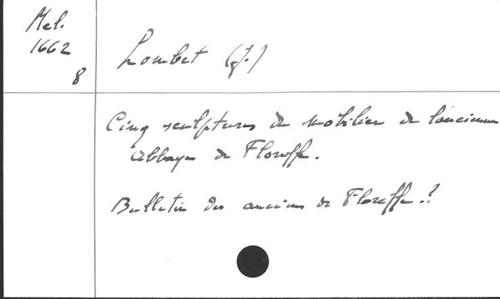 Mel.
1662
8
Lombet (J.)
Cinq sculptures du mobilier de l'ancienne
Abbaye de Floreffe.
Bulletin des anciens de Floreffe.?